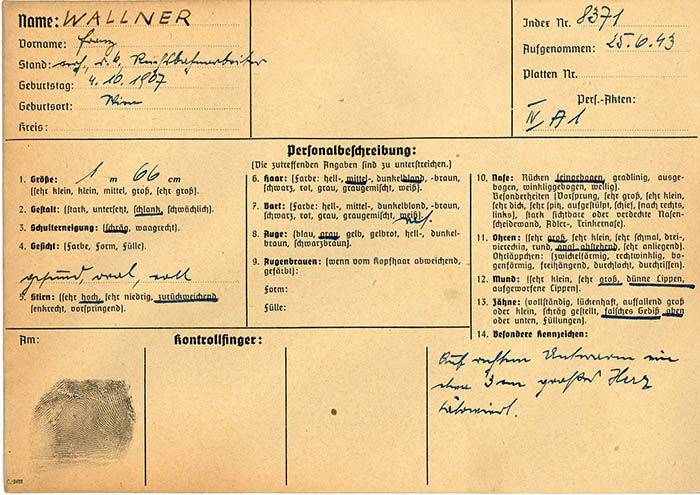 Name: WALLNER
Vorname: Franz
Stand: r.k., Reichsbahnarbeiter
Geburtstag: 4.10.1907
Geburtsort: Wien
Kreis:
Index Nr. 8371
Aufgenommen: 25.6.43
Platten Nr.
Pers.-Akten:
IV A1
Personalbeschreibung:
(Die zutreffenden Angaben sind zu unterstreichen.)
1. Größe: 1 m 66 cm
(sehr klein, klein, mittel, groß, sehr groß).
2. Gestalt: (stark, untersetzt, schlank, schwächlich).
3. Schulterneigung: (schräg, waagrecht).
4. Gesicht: (Farbe, Form, Fülle).
gesund, oval, voll
5. Stirn: (sehr hoch, sehr niedrig, zurückweichend,
senkrecht, vorspringend).
6. Haar: (Farbe: hell-, mittel-, dunkelblond, -braun,
schwarz, rot, grau, graugemischt, weiß).
7. Bart: (Farbe: hell-, mittel-, dunkelblond, -braun,
schwarz, rot, grau, graugemischt, weiß).
8. Auge: (blau, grau, gelb, gelbrot, hell-, dunkel-
braun, schwarzbraun).
9. Augenbrauen: (wenn vom Kopfhaar abweichend,
gefärbt):
Form:
Fülle:
10. Nase: Rücken (eingebogen, gradlinig, ausge-
bogen, winkliggebogen, wellig).
Besonderheiten (Vorsprung, sehr groß, sehr klein,
sehr dick, sehr spitz, aufgestülpt, schief, (nach rechts,
links), stark sichtbare oder verdeckte Nasen-
scheidewand, Adler-, Trinkernase).
11. Ohren: (sehr groß, sehr klein, sehr schmal, drei-
viereckig, rund, oval, abstehend, sehr anliegend).
Ohrläppchen: (zwickelförmig, rechtwinklig, bo-
genförmig, freihängend, durchlocht, durchrissen).
12. Mund: (sehr klein, sehr groß, dünne Lippen,
aufgeworfene Lippen).
13. Zähne: (vollständig, lückenhaft, auffallend groß
oder klein, schräg gestellt, falsches Gebiß oben
oder unten, Füllungen).
14. Besondere Kennzeichen:
Auf rechtem Unterarm ein
etwa 3 cm großes Herz
tätowiert.
Am:
Kontrollfinger: